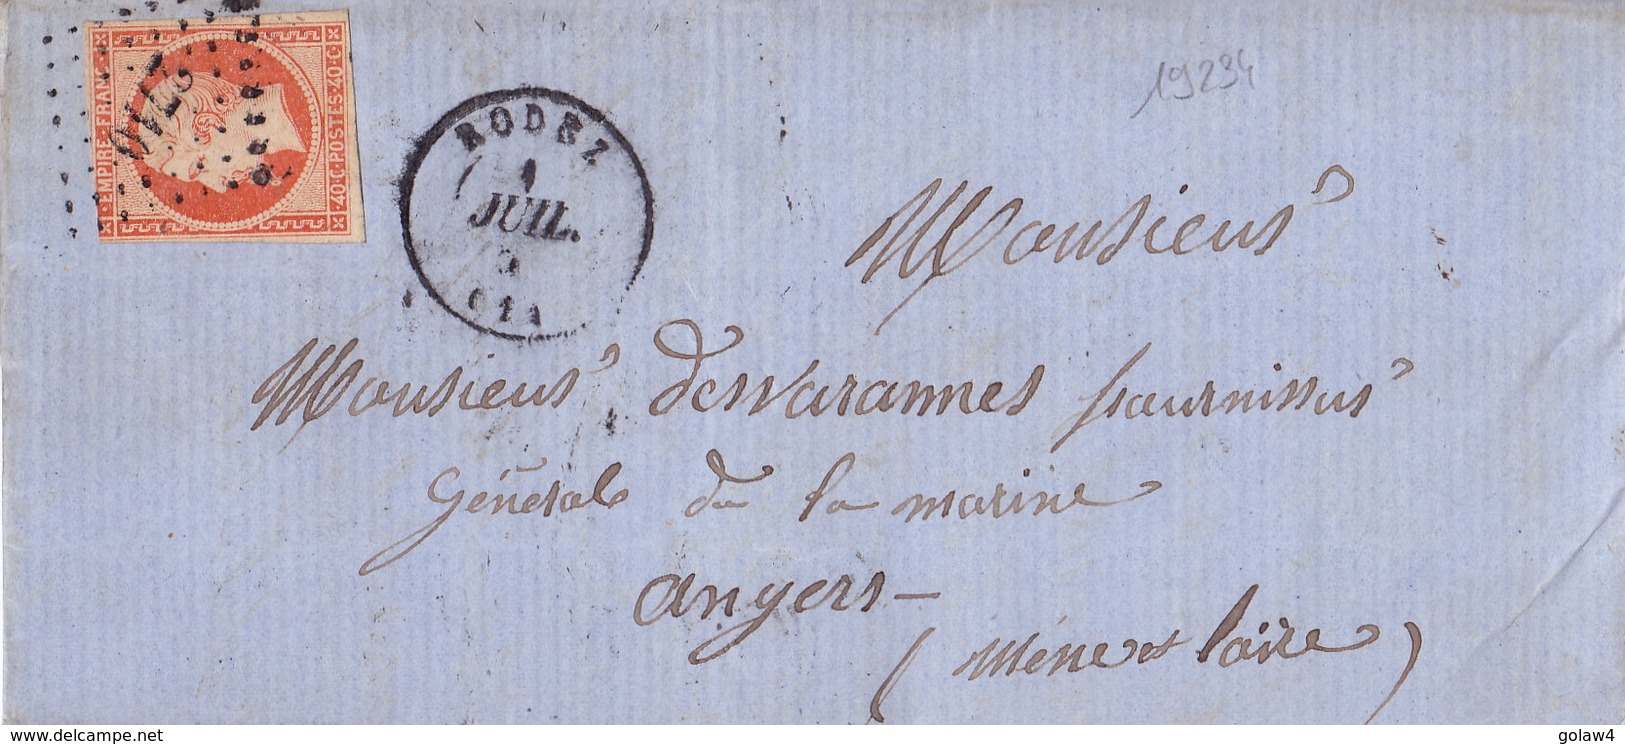 EMPIRE·FRANC·
40·C·POSTES·40·C·
2710
19234
RODEZ
1
JUIL.
Monsieur
Monsieur Desvarannes fournisseur
Général de la marine
angers —
(Mene et Loire)
www.delcampe.net
golaw4